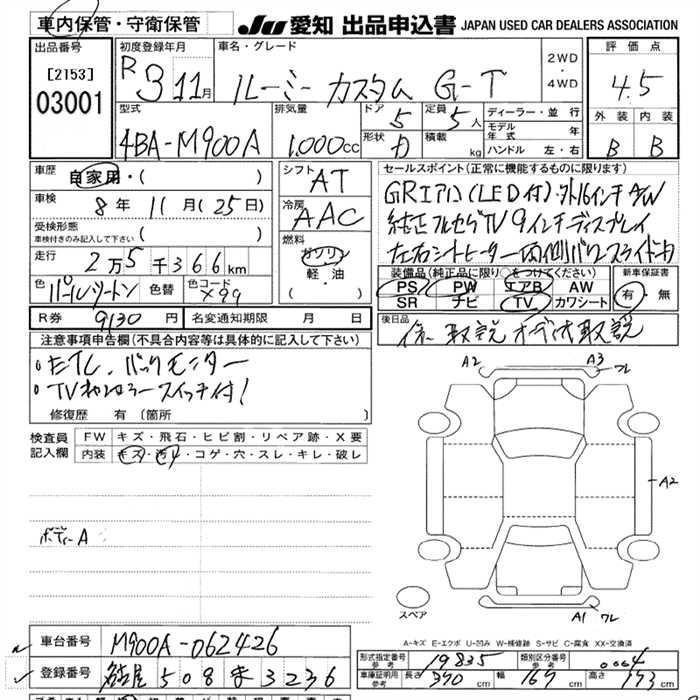 車内保管・守衛保管
JU 愛知 出品申込書 JAPAN USED CAR DEALERS ASSOCIATION
出品番号
[2153]
03001
初度登録年月
R 3 11月
車名・グレード
ルーミー カスタム G-T
2WD
・
4WD
評価点
4.5
外装 内装
B B
型式
4BA-M900A
排気量
1,000cc
ドア 5
定員 5人
形状
積載 kg
ディーラー・並行
モデル年式 年
ハンドル 左・右
車歴
自家用・( )
車検
8年 11月(25日)
受検形態
車検付きのみ記入して下さい ( )
走行
2万5千366km
色 パールツートン 色替 色コード X99
シフト AT
冷房 AAC
燃料
ガソリン
軽・油
( ・ )
セールスポイント(正常に機能するものに限ります)
GRエアロ(LED付)・外16インチAW
純正フルセグTV 9インチディスプレイ
左右シートヒーター 両側パワースライドドア
装備品(純正品に限り○をつけてください)
PS PW エアB AW
SR ナビ TV カワシート
新車保証書
有・無
R券 9130円
名変通知期限 月 日
後日品
保、取説 オーディオ取説
注意事項申告欄(不具合内容等は具体的に記入して下さい)
・ETC、バックモニター
・TVキャンセラースイッチ付!
修復歴 有 [箇所 ]
検査員記入欄
FW キズ・飛石・ヒビ割・リペア跡・X要
内装 キズ・汚れ・コゲ・穴・スレ・キレ・破レ
ボデーA
A2
A3 ワレ
A2
A1 ワレ
スペア
A-キズ E-エクボ U-凹み W-補修跡 S-サビ C-腐食 XX-交換済
車台番号 M900A-062426
登録番号 名古屋 508 ま 3236
形式指定番号 参考 19835
類別区分番号 参考 0004
車庫証明用 参考 長さ 370cm 幅 167cm 高さ 173cm